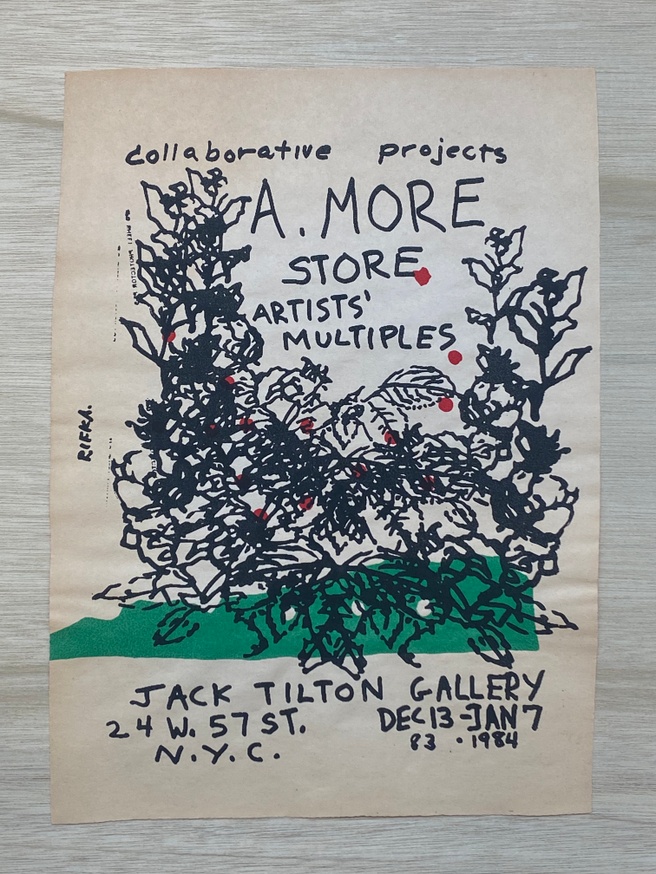 collaborative projects
A. MORE
STORE
ARTISTS'
MULTIPLES
RIFKA.
JACK TILTON GALLERY
24 W. 57 ST. DEC 13-JAN 7
N.Y.C. 83 • 1984